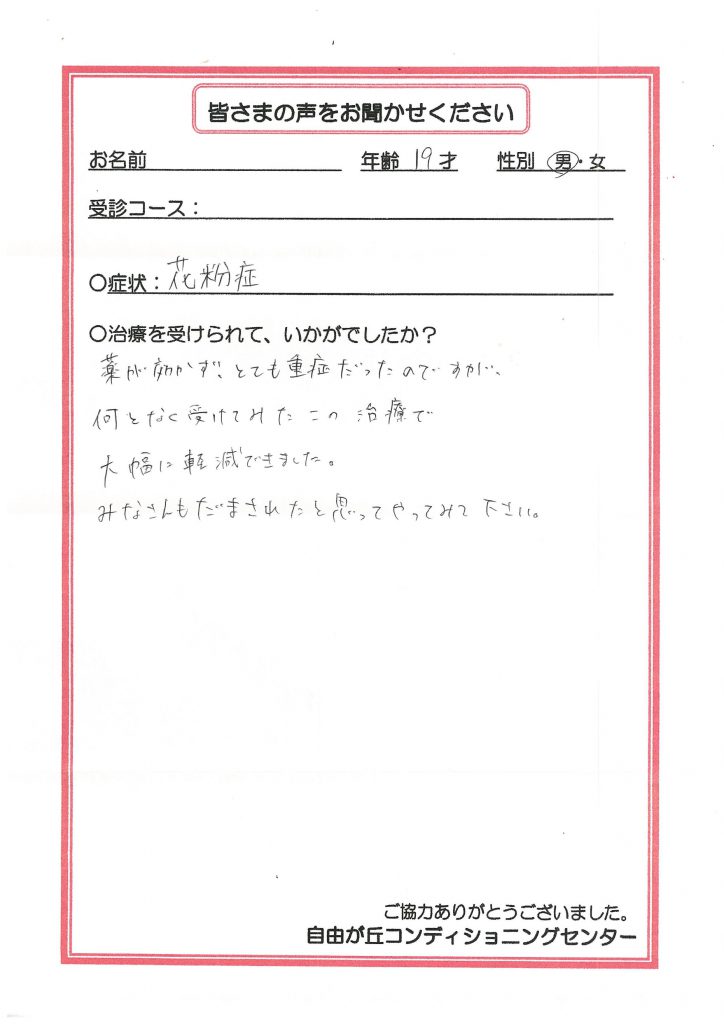 皆さまの声をお聞かせください
お名前 年齢 19才 性別 男・女
受診コース：
〇症状：花粉症
〇治療を受けられて、いかがでしたか？
薬が効かず、とても重症だったのですが、
何となく受けてみたこの治療で
大幅に軽減できました。
みなさんもだまされたと思ってやってみて下さい。
ご協力ありがとうございました。
自由が丘コンディショニングセンター